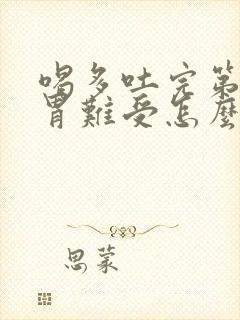 喝多吐完第
胃難受怎麼
思蒙